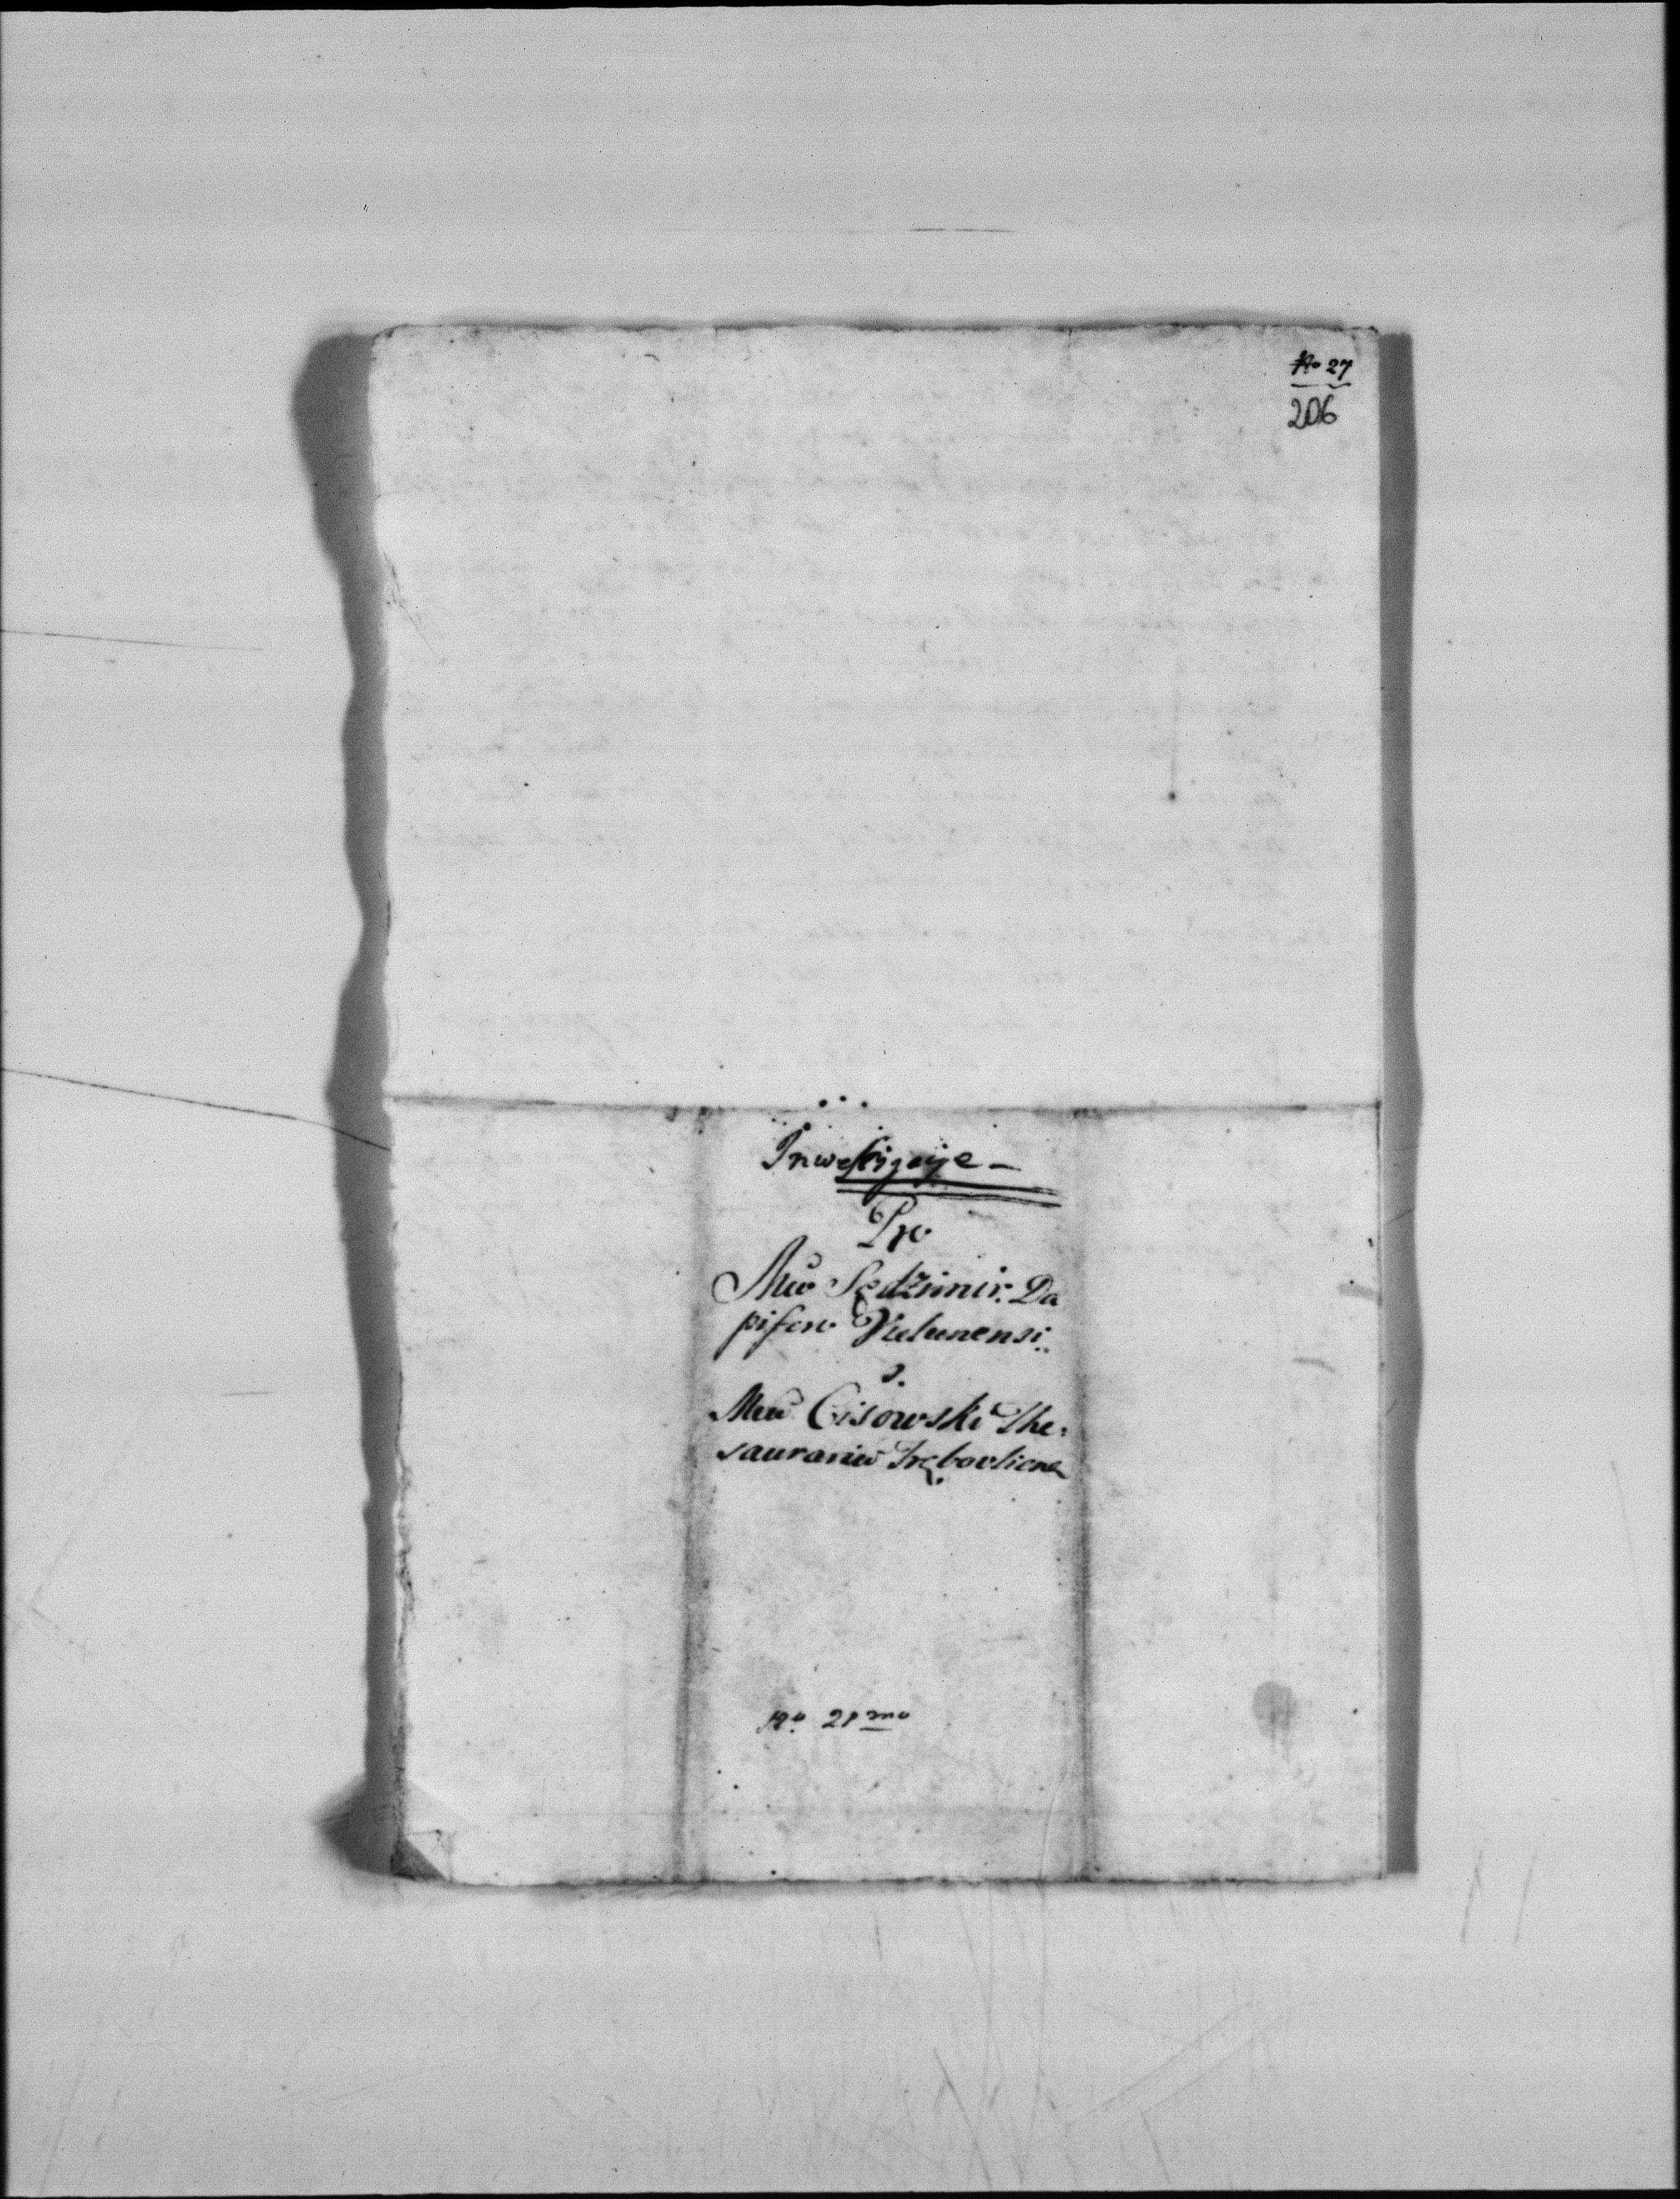 No 27
206
Inwestygacye –
Pro
Mco Sędzimir Da
pifero Vielunensi
Mco Cisowski The:
saurario Trębovliens
No 21 mo